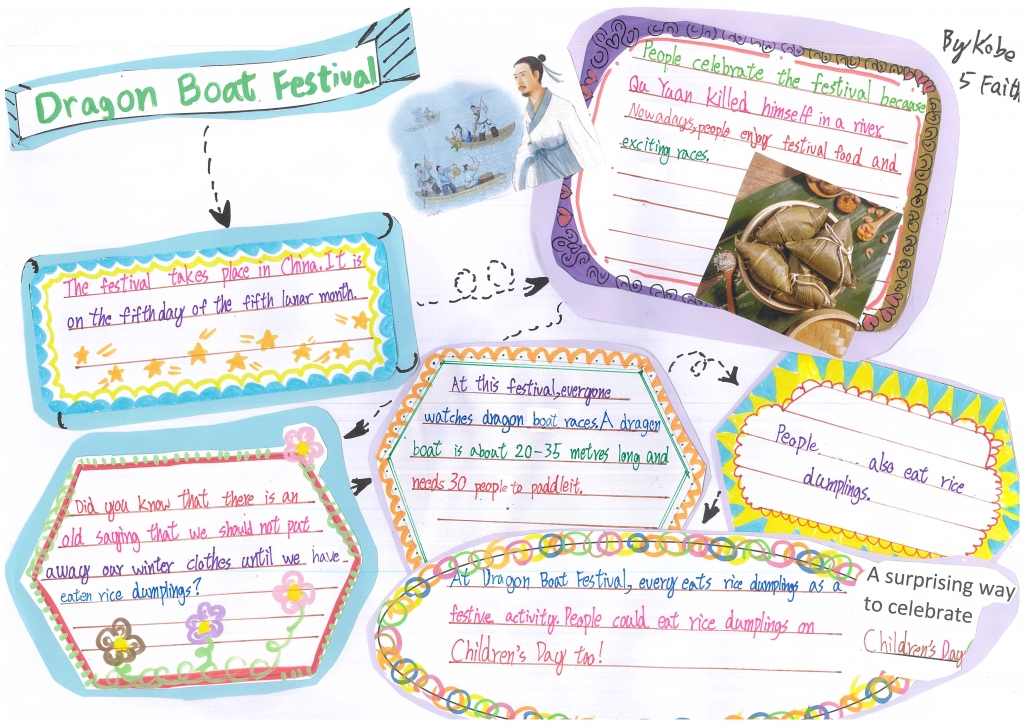 Dragon Boat Festival
By Kobe
5 Faith
The festival takes place in China. It is
on the fifth day of the fifth lunar month.
People celebrate the festival because
Qu Yuan killed himself in a river.
Nowadays, people enjoy festival food and
exciting races.
Did you know that there is an
old saying that we should not put
away our winter clothes until we have
eaten rice dumplings?
At this festival, everyone
watches dragon boat races. A dragon
boat is about 20-35 metres long and
needs 30 people to paddle it.
People...... also eat rice
dumplings.
At Dragon Boat Festival, every eats rice dumplings as a
festive activity. People could eat rice dumplings on
Children's Day too!
A surprising way
to celebrate
Children's Day